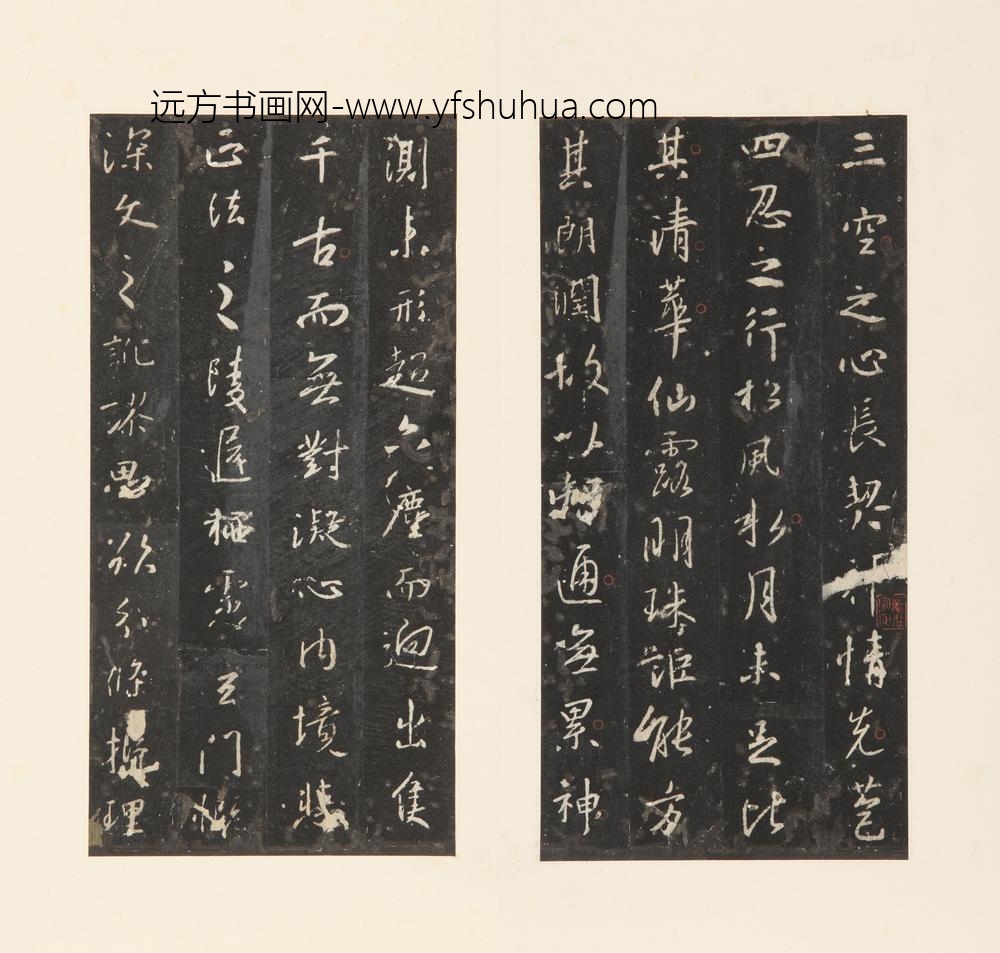 远方书画网-www.yfshuhua.com
三空之心長契神情先苞
四忍之行松風水月未足比
其清華仙露明珠詎能方
其朗潤故以智通無累神
測未形超六塵而迥出隻
千古而無對凝心內境悲
正法之陵遲栖慮玄門慨
深文之訛謬思欲分條析理